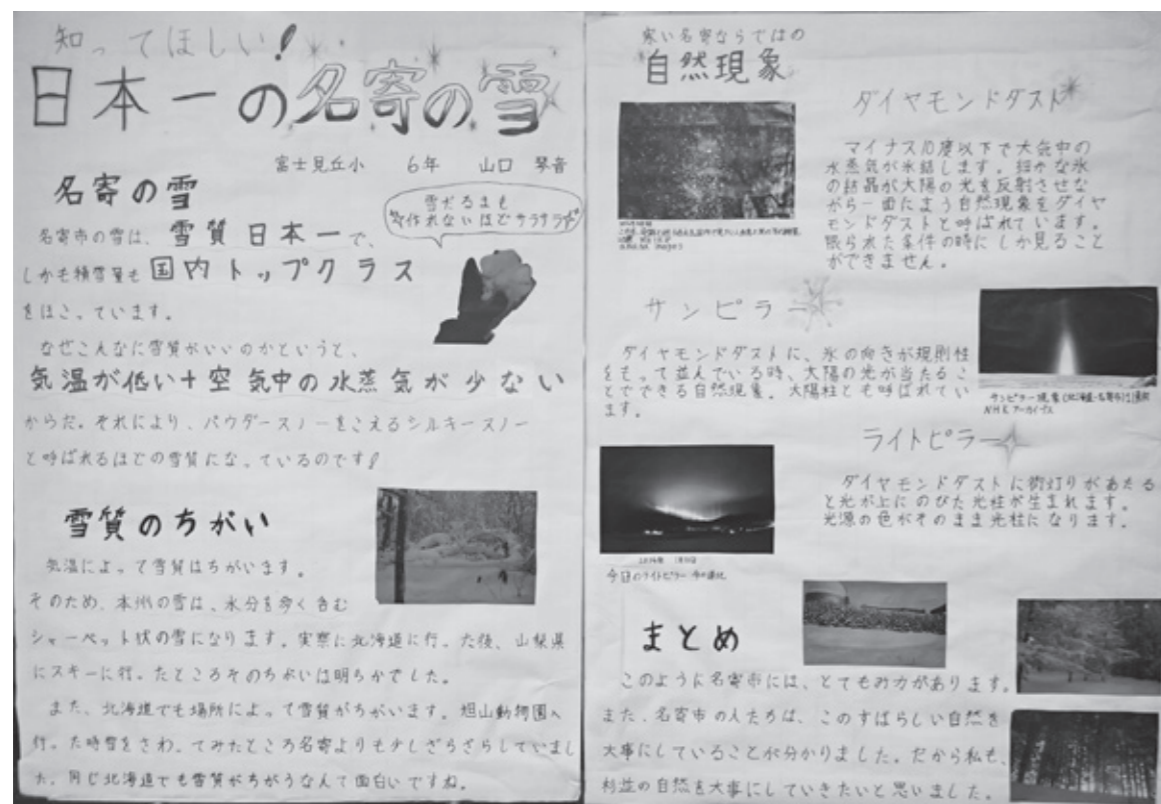 知ってほしい!
日本一の名寄の雪
富士見丘小 6年 山口 琴音
名寄の雪
雪だるまも
作れないほどサラサラ
名寄市の雪は、雪質日本一で、
しかも積雪量も国内トップクラス
をほこっています。
なぜこんなに雪質がいいのかというと、
気温が低い+空気中の水蒸気が少ない
からだ。それにより、パウダースノーをこえるシルキースノー
と呼ばれるほどの雪質になっているのです!
雪質のちがい
気温によって雪質はちがいます。
そのため、本州の雪は、水分を多く含む
シャーベット状の雪になります。実際に北海道に行った後、山梨県
にスキーに行ったところそのちがいは明らかでした。
また、北海道でも場所によって雪質がちがいます。旭山動物園へ
行った時雪をさわってみたところ名寄よりも少しざらざらしていまし
た。同じ北海道でも雪質がちがうなんて面白いですね。
寒い名寄ならではの
自然現象
ダイヤモンドダスト
マイナス10度以下で大気中の
水蒸気が氷結します。細かな氷
の結晶が太陽の光を反射させな
がら一面にまう自然現象をダイヤ
モンドダストと呼ばれています。
限られた条件の時にしか見ること
ができません。
サンピラー
ダイヤモンドダストに、氷の向きが規則性
をもって並んでいる時、太陽の光が当たるこ
とでできる自然現象。太陽柱とも呼ばれてい
ます。
サンピラー現象(北海道・名寄市)
NHKアーカイブス
ライトピラー
ダイヤモンドダストに街灯りがあたる
と光が上にのびた光柱が生まれます。
光源の色がそのまま光柱になります。
今日のライトピラー
まとめ
このように名寄市には、とてもみ力があります。
また、名寄市の人たちは、このすばらしい自然を
大事にしていることが分かりました。だから私も、
杉並の自然を大事にしていきたいと思いました。